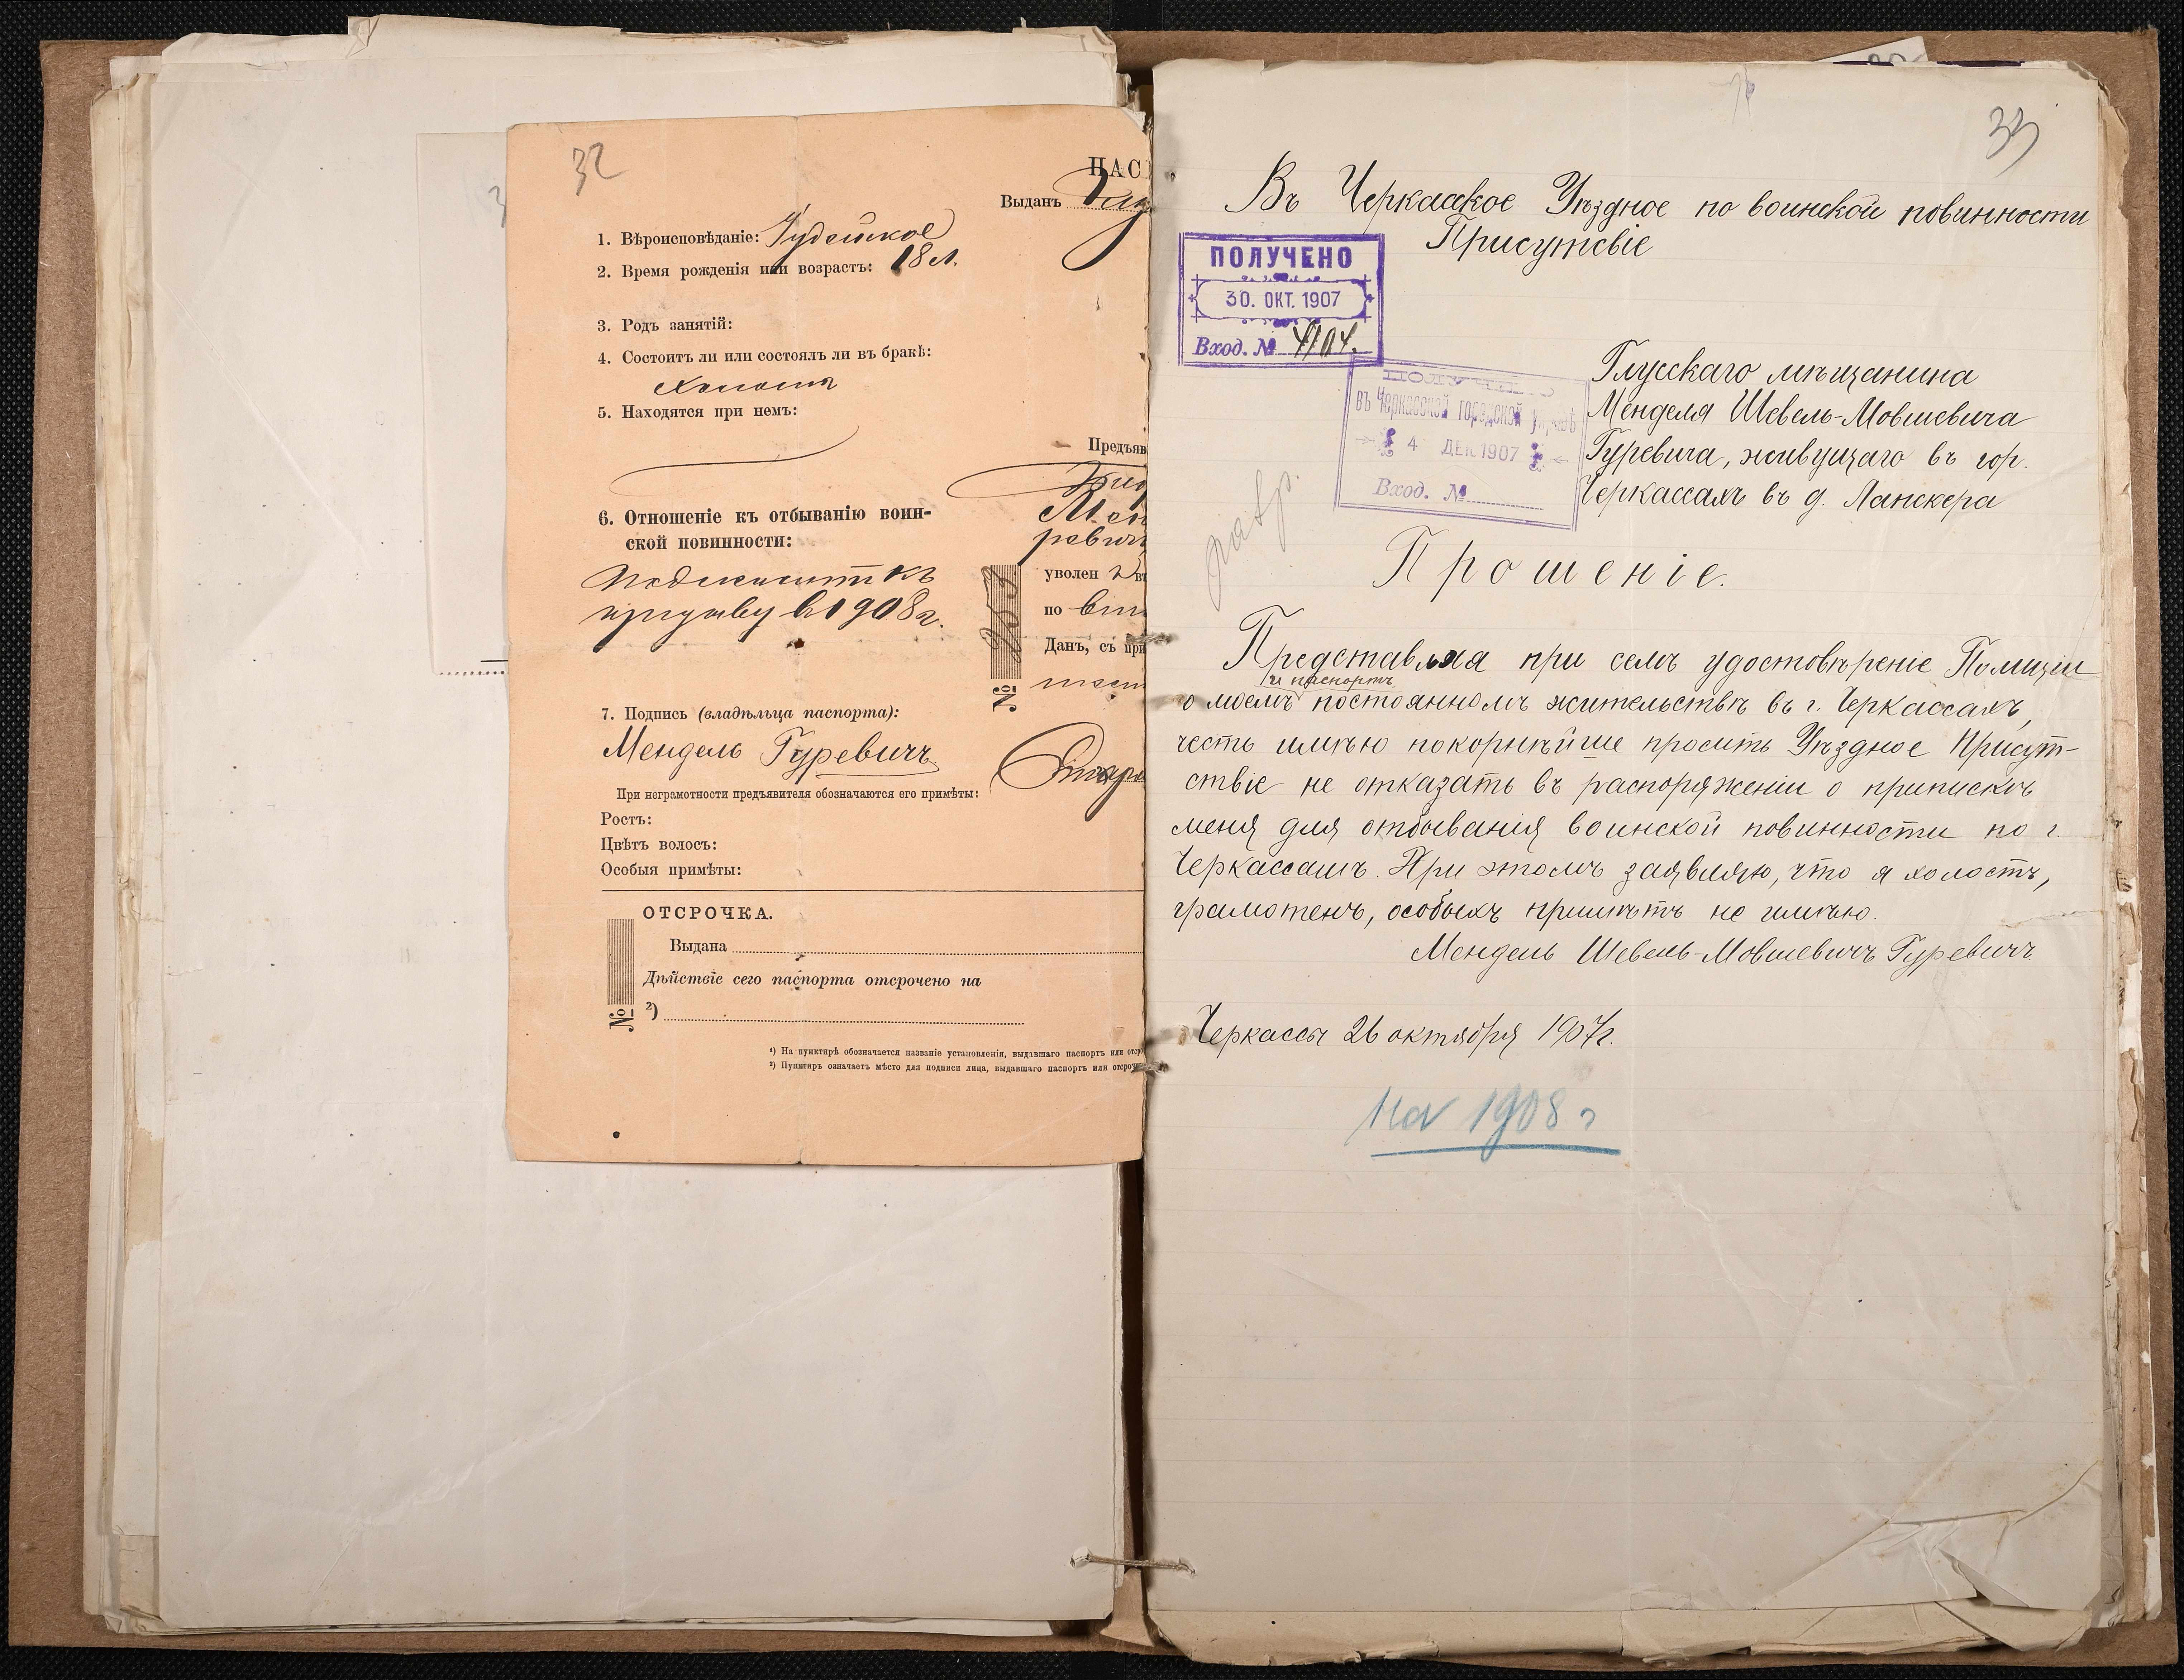 32
ПАС
Выданъ
1. Вѣроисповѣданіе: Іудейское
2. Время рожденія или возрастъ: 18 л.
3. Родъ занятій:
4. Состоитъ ли или состоялъ ли въ бракѣ:
холостъ
5. Находятся при немъ:
6. Отношеніе къ отбыванію воин-
ской повинности:
подлежитъ къ
призыву въ 1908 г.
7. Подпись (владѣльца паспорта):
Мендель Гуревичъ
При неграмотности предъявителя обозначаются его примѣты:
Ростъ:
Цвѣтъ волосъ:
Особыя примѣты:
Предъяв
Мен
ревичъ
уволен въ
по
Данъ, съ при
№ 253
ОТСРОЧКА.
Выдана
Дѣйствіе сего паспорта отсрочено на
№ ²)
¹) На пунктирѣ обозначается названіе установленія, выдавшаго паспортъ или отср
²) Пунктиръ означаетъ мѣсто для подписи лица, выдавшаго паспортъ или отсроч
33
Въ Черкасское Уѣздное по воинской повинности
Присутсвіе
ПОЛУЧЕНО
30. ОКТ. 1907
Вход. № 4104.
ПОЛУЧЕНО
въ Черкасской городской управѣ
4 ДЕК. 1907
Вход. №
Глусскаго мѣщанина
Менделя Шевель-Мовшевича
Гуревича, живущаго въ гор.
Черкассахъ въ д. Ланскера
Прошеніе.
Представляя при семъ удостовѣреніе Полиціи
и паспортъ
о моемъ постоянномъ жительствѣ въ г. Черкассахъ,
честь имѣю покорнѣйше просить Уѣздное Присут-
ствіе не отказать въ распоряженіи о припискѣ
меня для отбыванія воинской повинности по г.
Черкассамъ. При этомъ заявляю, что я холостъ,
грамотенъ, особыхъ примѣтъ не имѣю.
Мендель Шевель-Мовшевичъ Гуревичъ
Черкассы 26 октября 1907 г.
на 1908 г